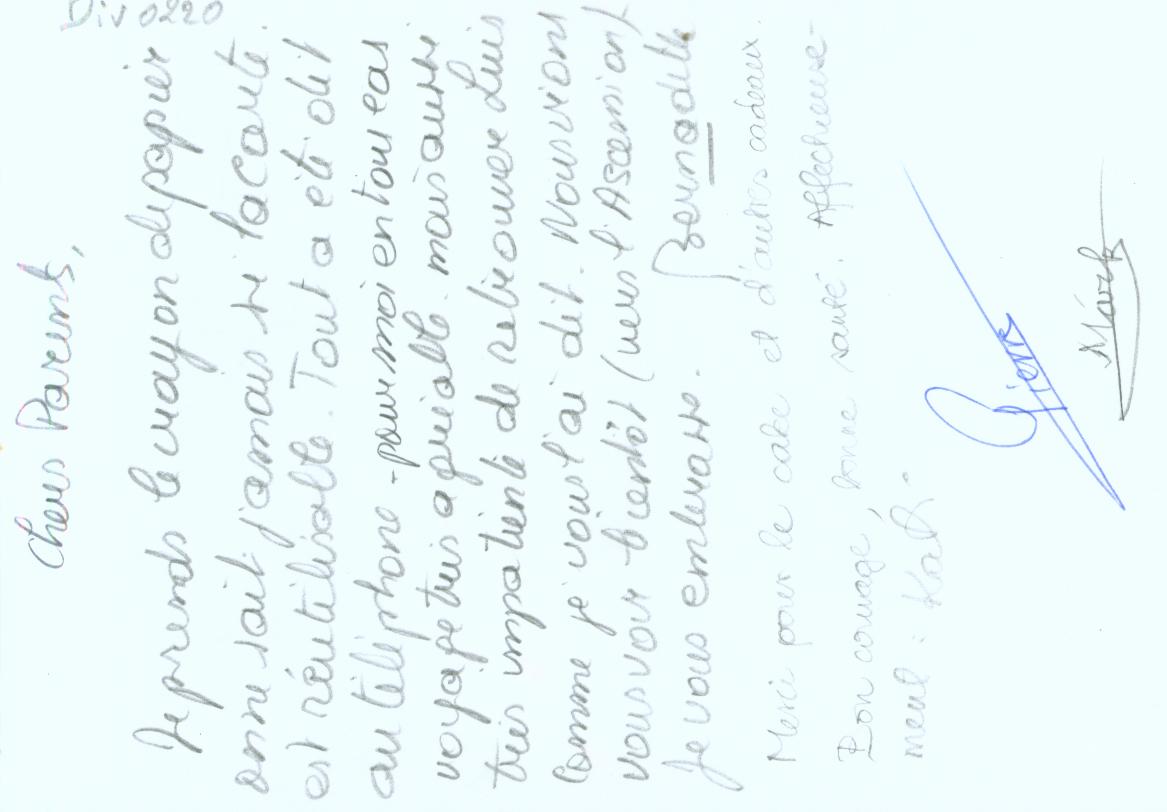 Div 0220
Chers Parents,
Je prends le crayon de papier
on ne sait jamais si la carte
est réutilisable. Tout a été dit
au téléphone - pour moi en tout cas
voyage très agréable. mais aussi
très impatiente de retrouver Luis
Comme je vous l'ai dit. Nous irons
vous voir bientôt (vers l'Ascension)
Je vous embrasse. Bernadette
Merci pour le cake et d'autres cadeaux.
Bon courage, bonne santé. Affectueuse-
ment. Kat.
Pierre